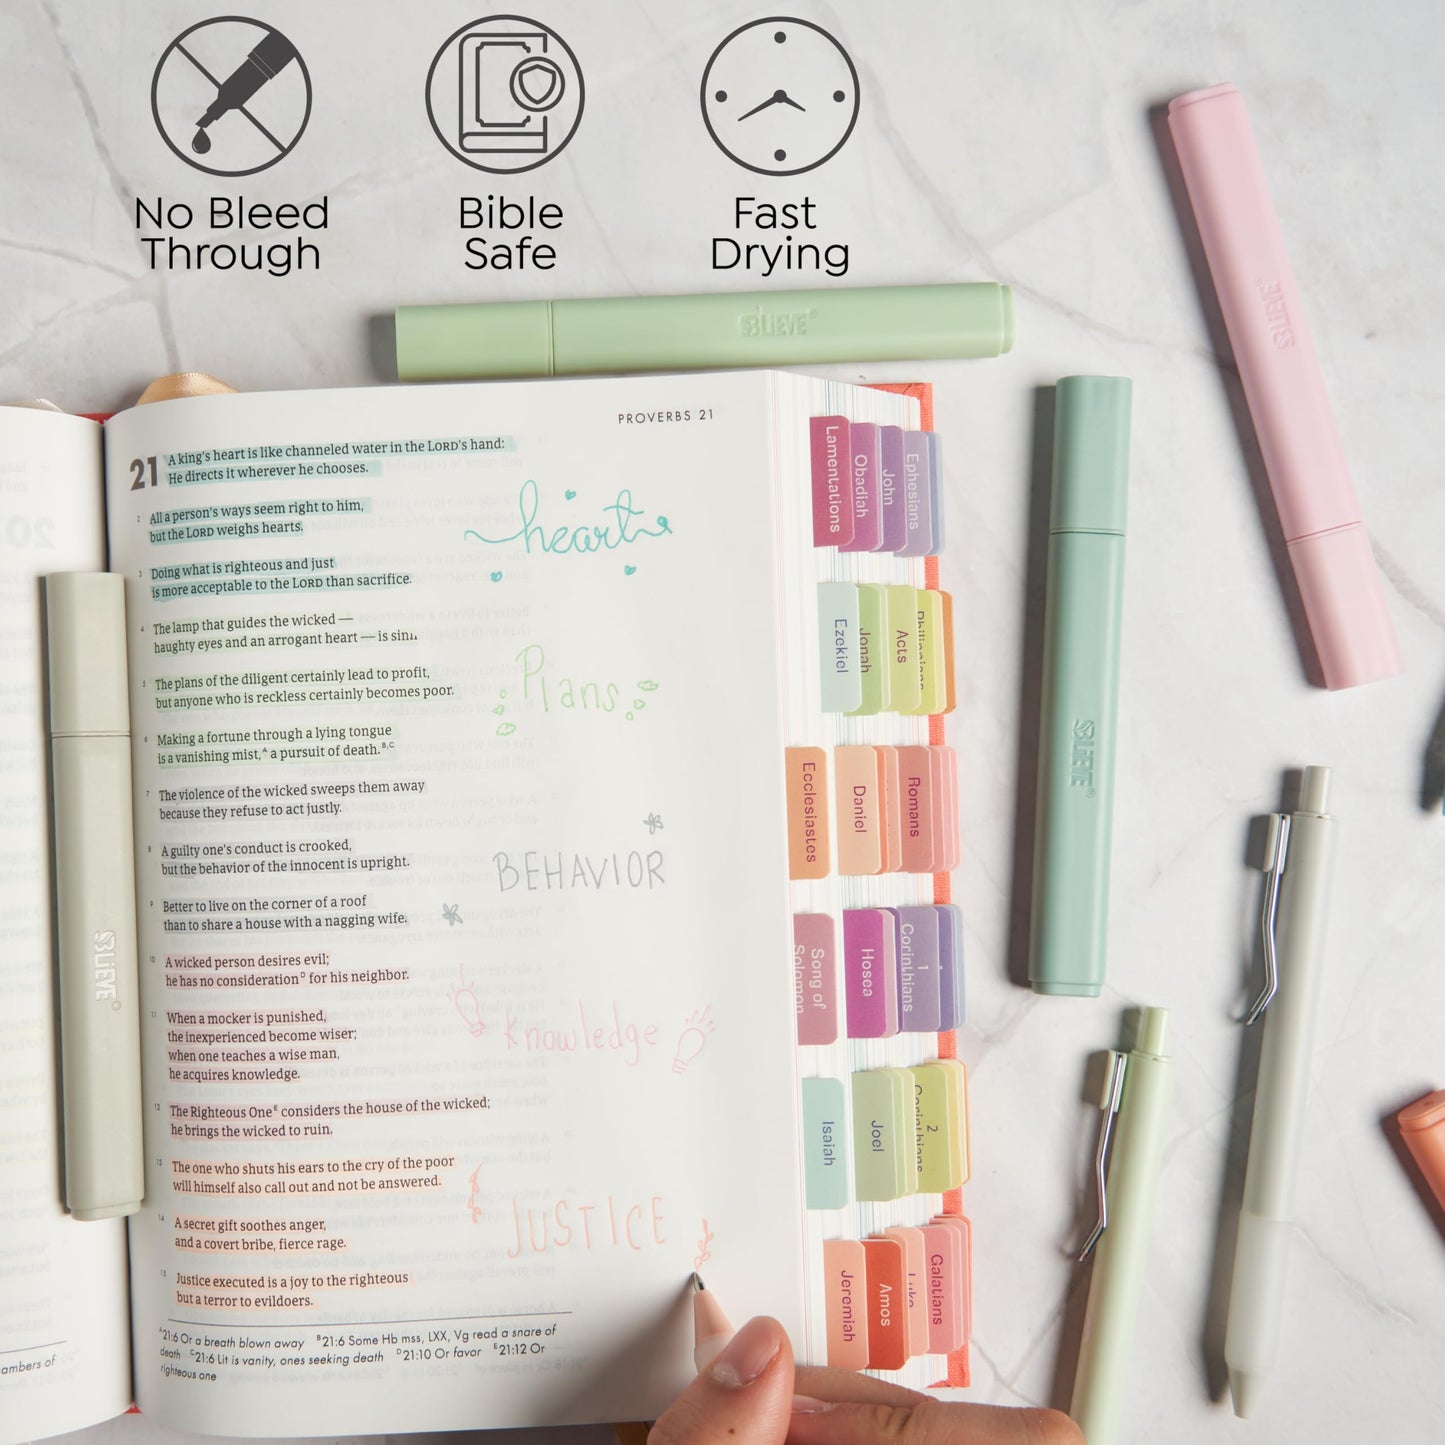 No Bleed
Through
Bible
Safe
Fast
Drying
B'LIEVE®
B'LIEVE®
B'LIEVE®
B'LIEVE®
PROVERBS 21
21 A king's heart is like channeled water in the LORD's hand:
He directs it wherever he chooses.
2 All a person's ways seem right to him,
but the LORD weighs hearts.
3 Doing what is righteous and just
is more acceptable to the LORD than sacrifice.
4 The lamp that guides the wicked —
haughty eyes and an arrogant heart — is sin.
5 The plans of the diligent certainly lead to profit,
but anyone who is reckless certainly becomes poor.
6 Making a fortune through a lying tongue
is a vanishing mist,ᴬ a pursuit of death.ᴮ,ᶜ
7 The violence of the wicked sweeps them away
because they refuse to act justly.
8 A guilty one's conduct is crooked,
but the behavior of the innocent is upright.
9 Better to live on the corner of a roof
than to share a house with a nagging wife.
10 A wicked person desires evil;
he has no considerationᴰ for his neighbor.
11 When a mocker is punished,
the inexperienced become wiser;
when one teaches a wise man,
he acquires knowledge.
12 The Righteous Oneᴱ considers the house of the wicked;
he brings the wicked to ruin.
13 The one who shuts his ears to the cry of the poor
will himself also call out and not be answered.
14 A secret gift soothes anger,
and a covert bribe, fierce rage.
15 Justice executed is a joy to the righteous
but a terror to evildoers.
ᴬ21:6 Or a breath blown away ᴮ21:6 Some Hb mss, LXX, Vg read a snare of
death ᶜ21:6 Lit is vanity, ones seeking death ᴰ21:10 Or favor ᴱ21:12 Or
righteous one
heart
Plans
BEHAVIOR
Knowledge
JUSTICE
ambers of
20
Lamentations
Obadiah
John
Ephesians
Ezekiel
Jonah
Acts
Philippians
Ecclesiastes
Daniel
Romans
Song of
Solomon
Hosea
1
Corinthians
Isaiah
Joel
2
Corinthians
Jeremiah
Amos
Luke
Galatians